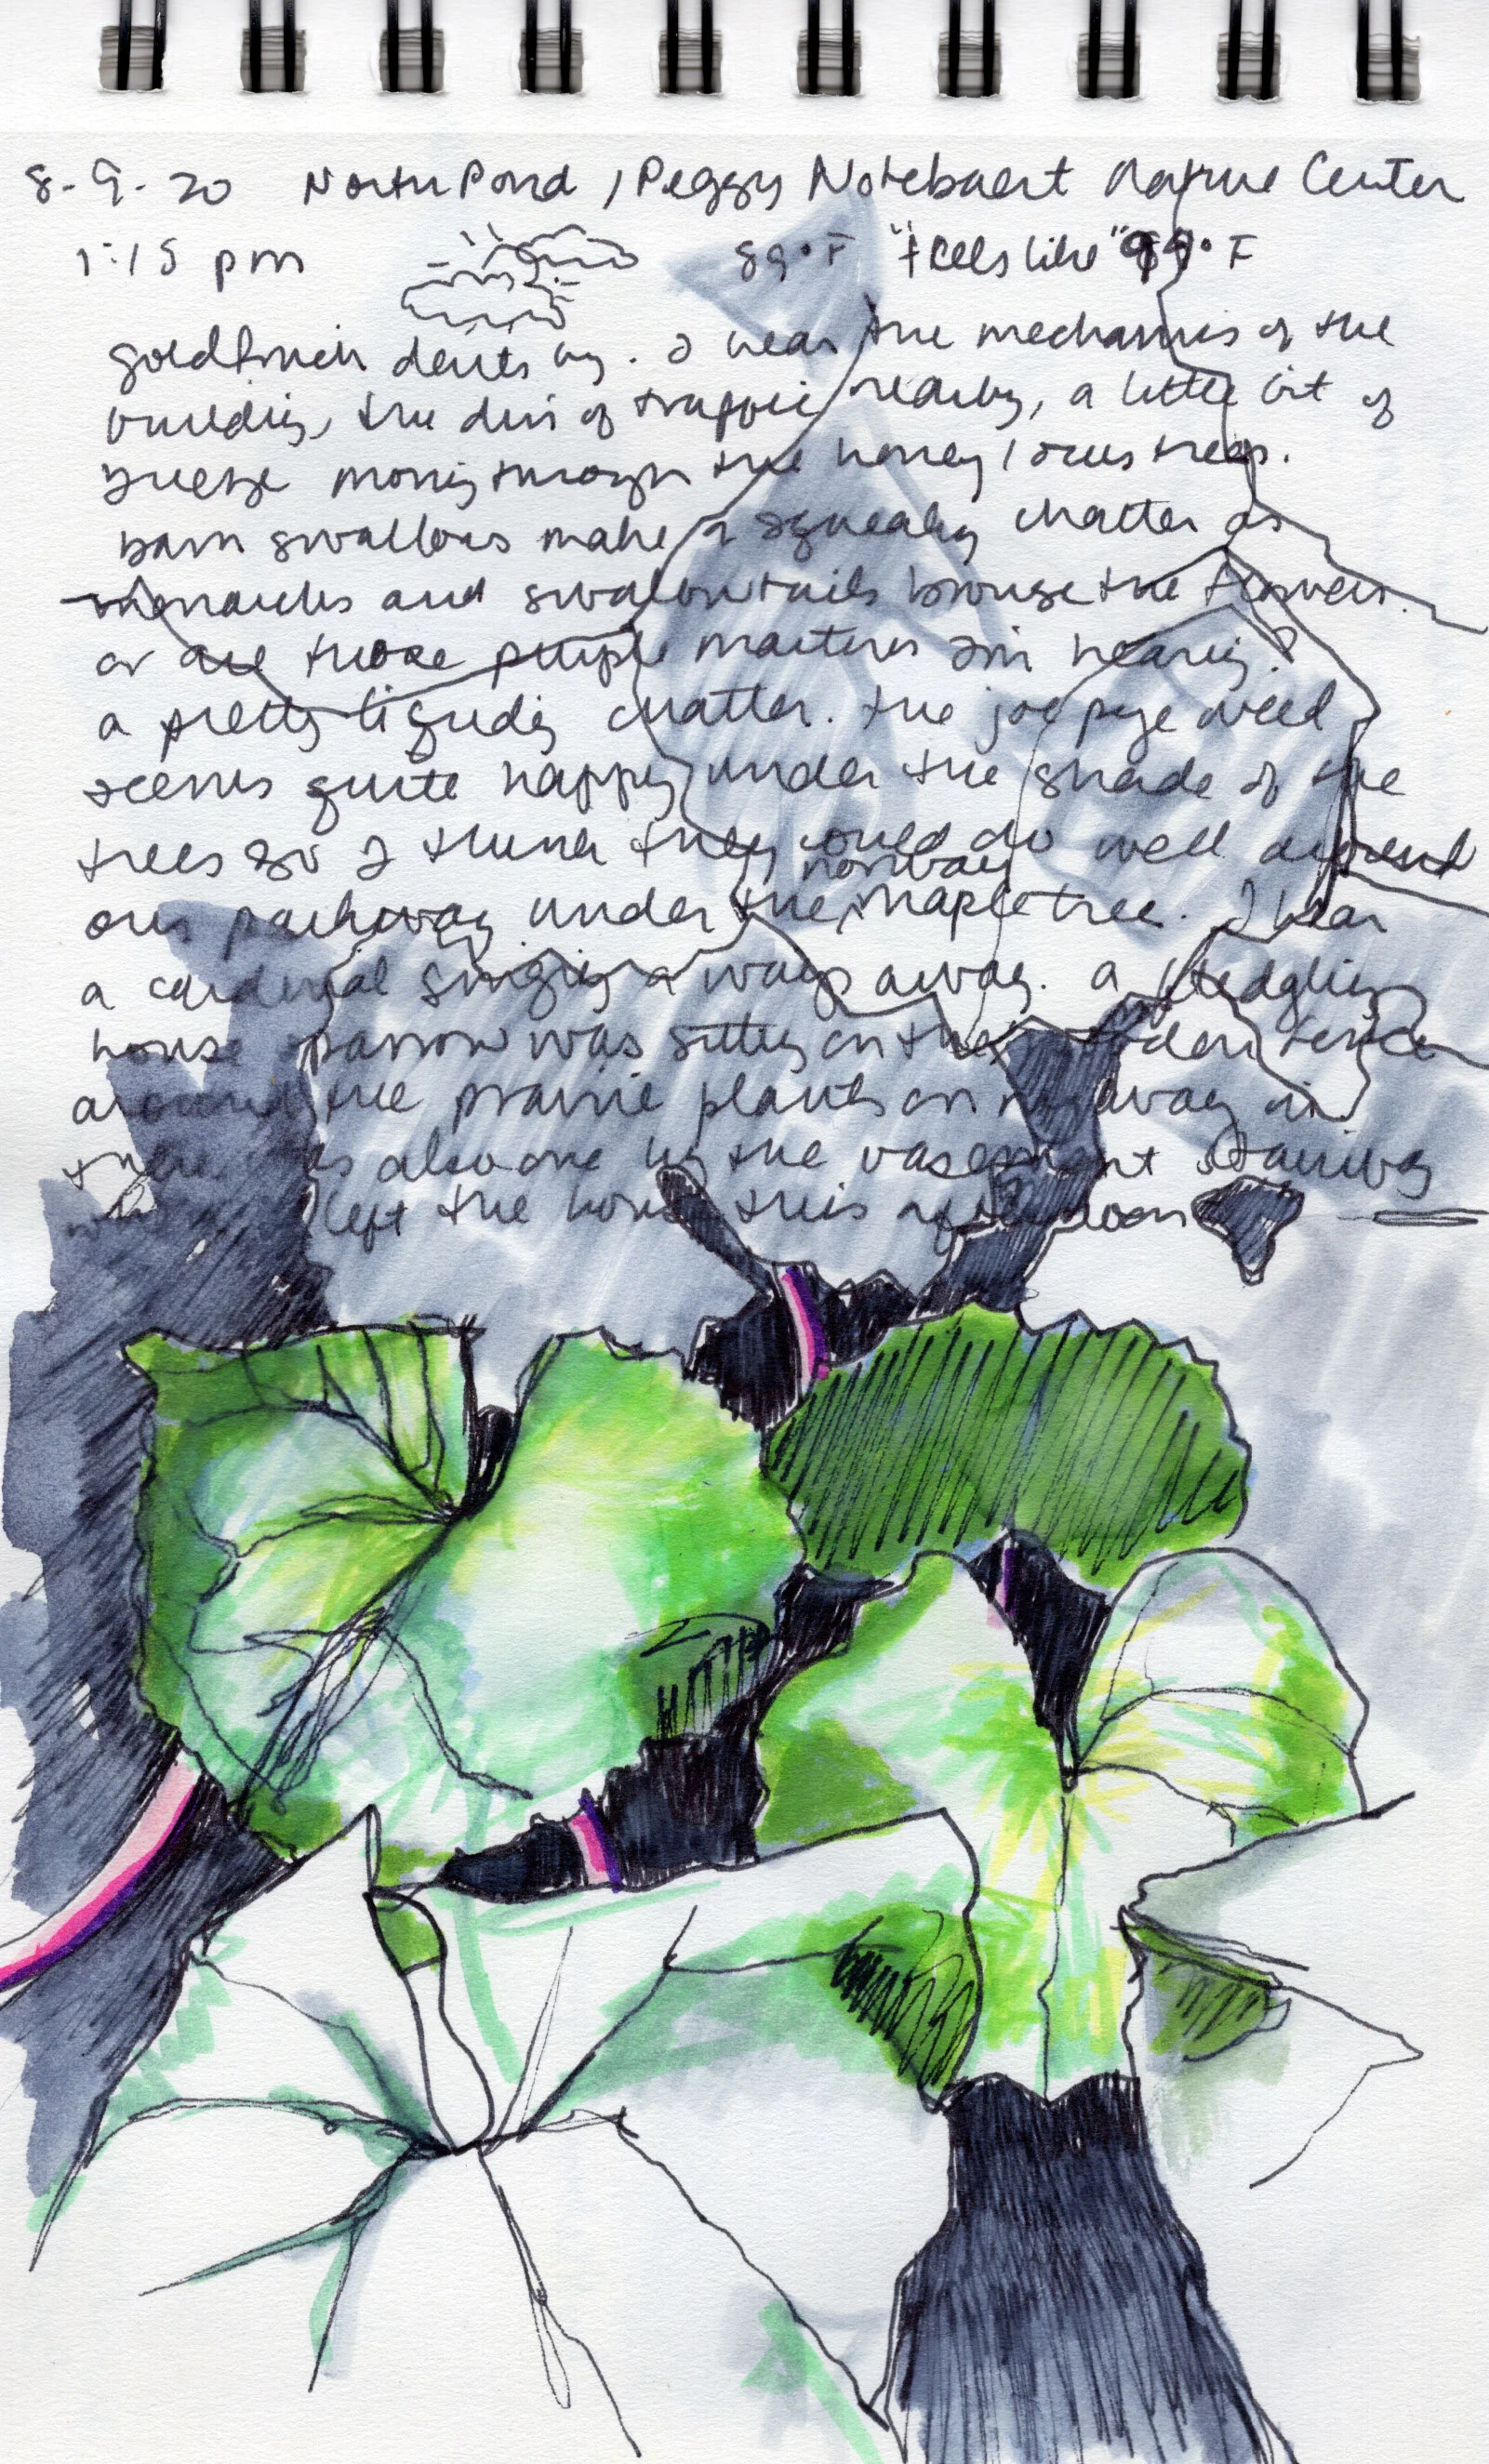 8-9-20 North Pond, Peggy Notebaert Nature Center
1:15 pm 89°F "feels like" 99°F
goldfinch darts by. I hear the mechanics of the
building, the din of traffic nearby, a little bit of
breeze moving through the honey locus trees.
barn swallows make a squeaky chatter as
monarchs and swallowtails browse the flowers.
or are those purple martins I'm hearing?
a pretty liquidy chatter. the joe pye weed
seems quite happy under the shade of the
trees so I think they could do well around
our pathway under the norway maple tree. I hear
a cardinal singing a ways away. a fledgling
house sparrow was sitting on the garden fence
around the prairie plants on my way in
there was also one by the basement stairway
when I left the house this afternoon